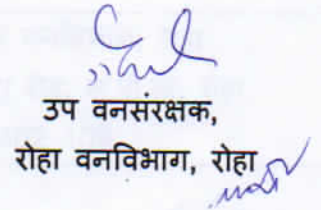 उप वनसंरक्षक,
रोहा वनविभाग, रोहा